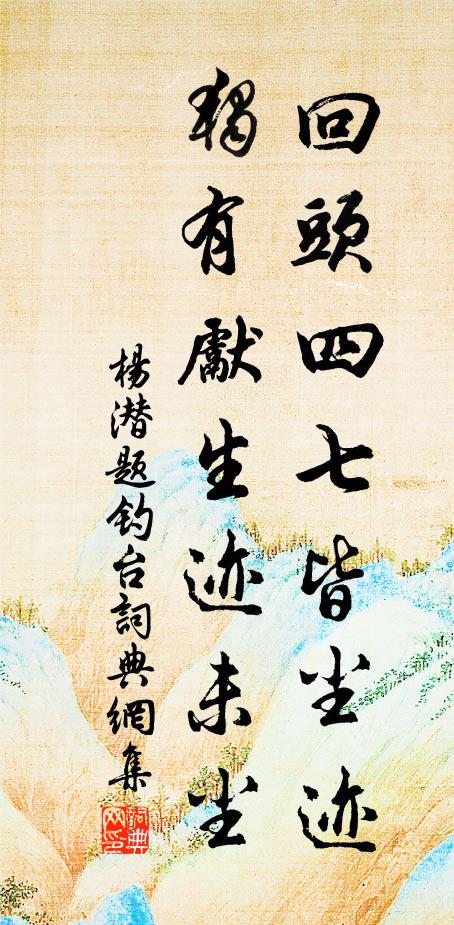 回頭四七皆尘迹
獨有獻生迹未尘
楊潛题钓台詞典網集
詞典
网印